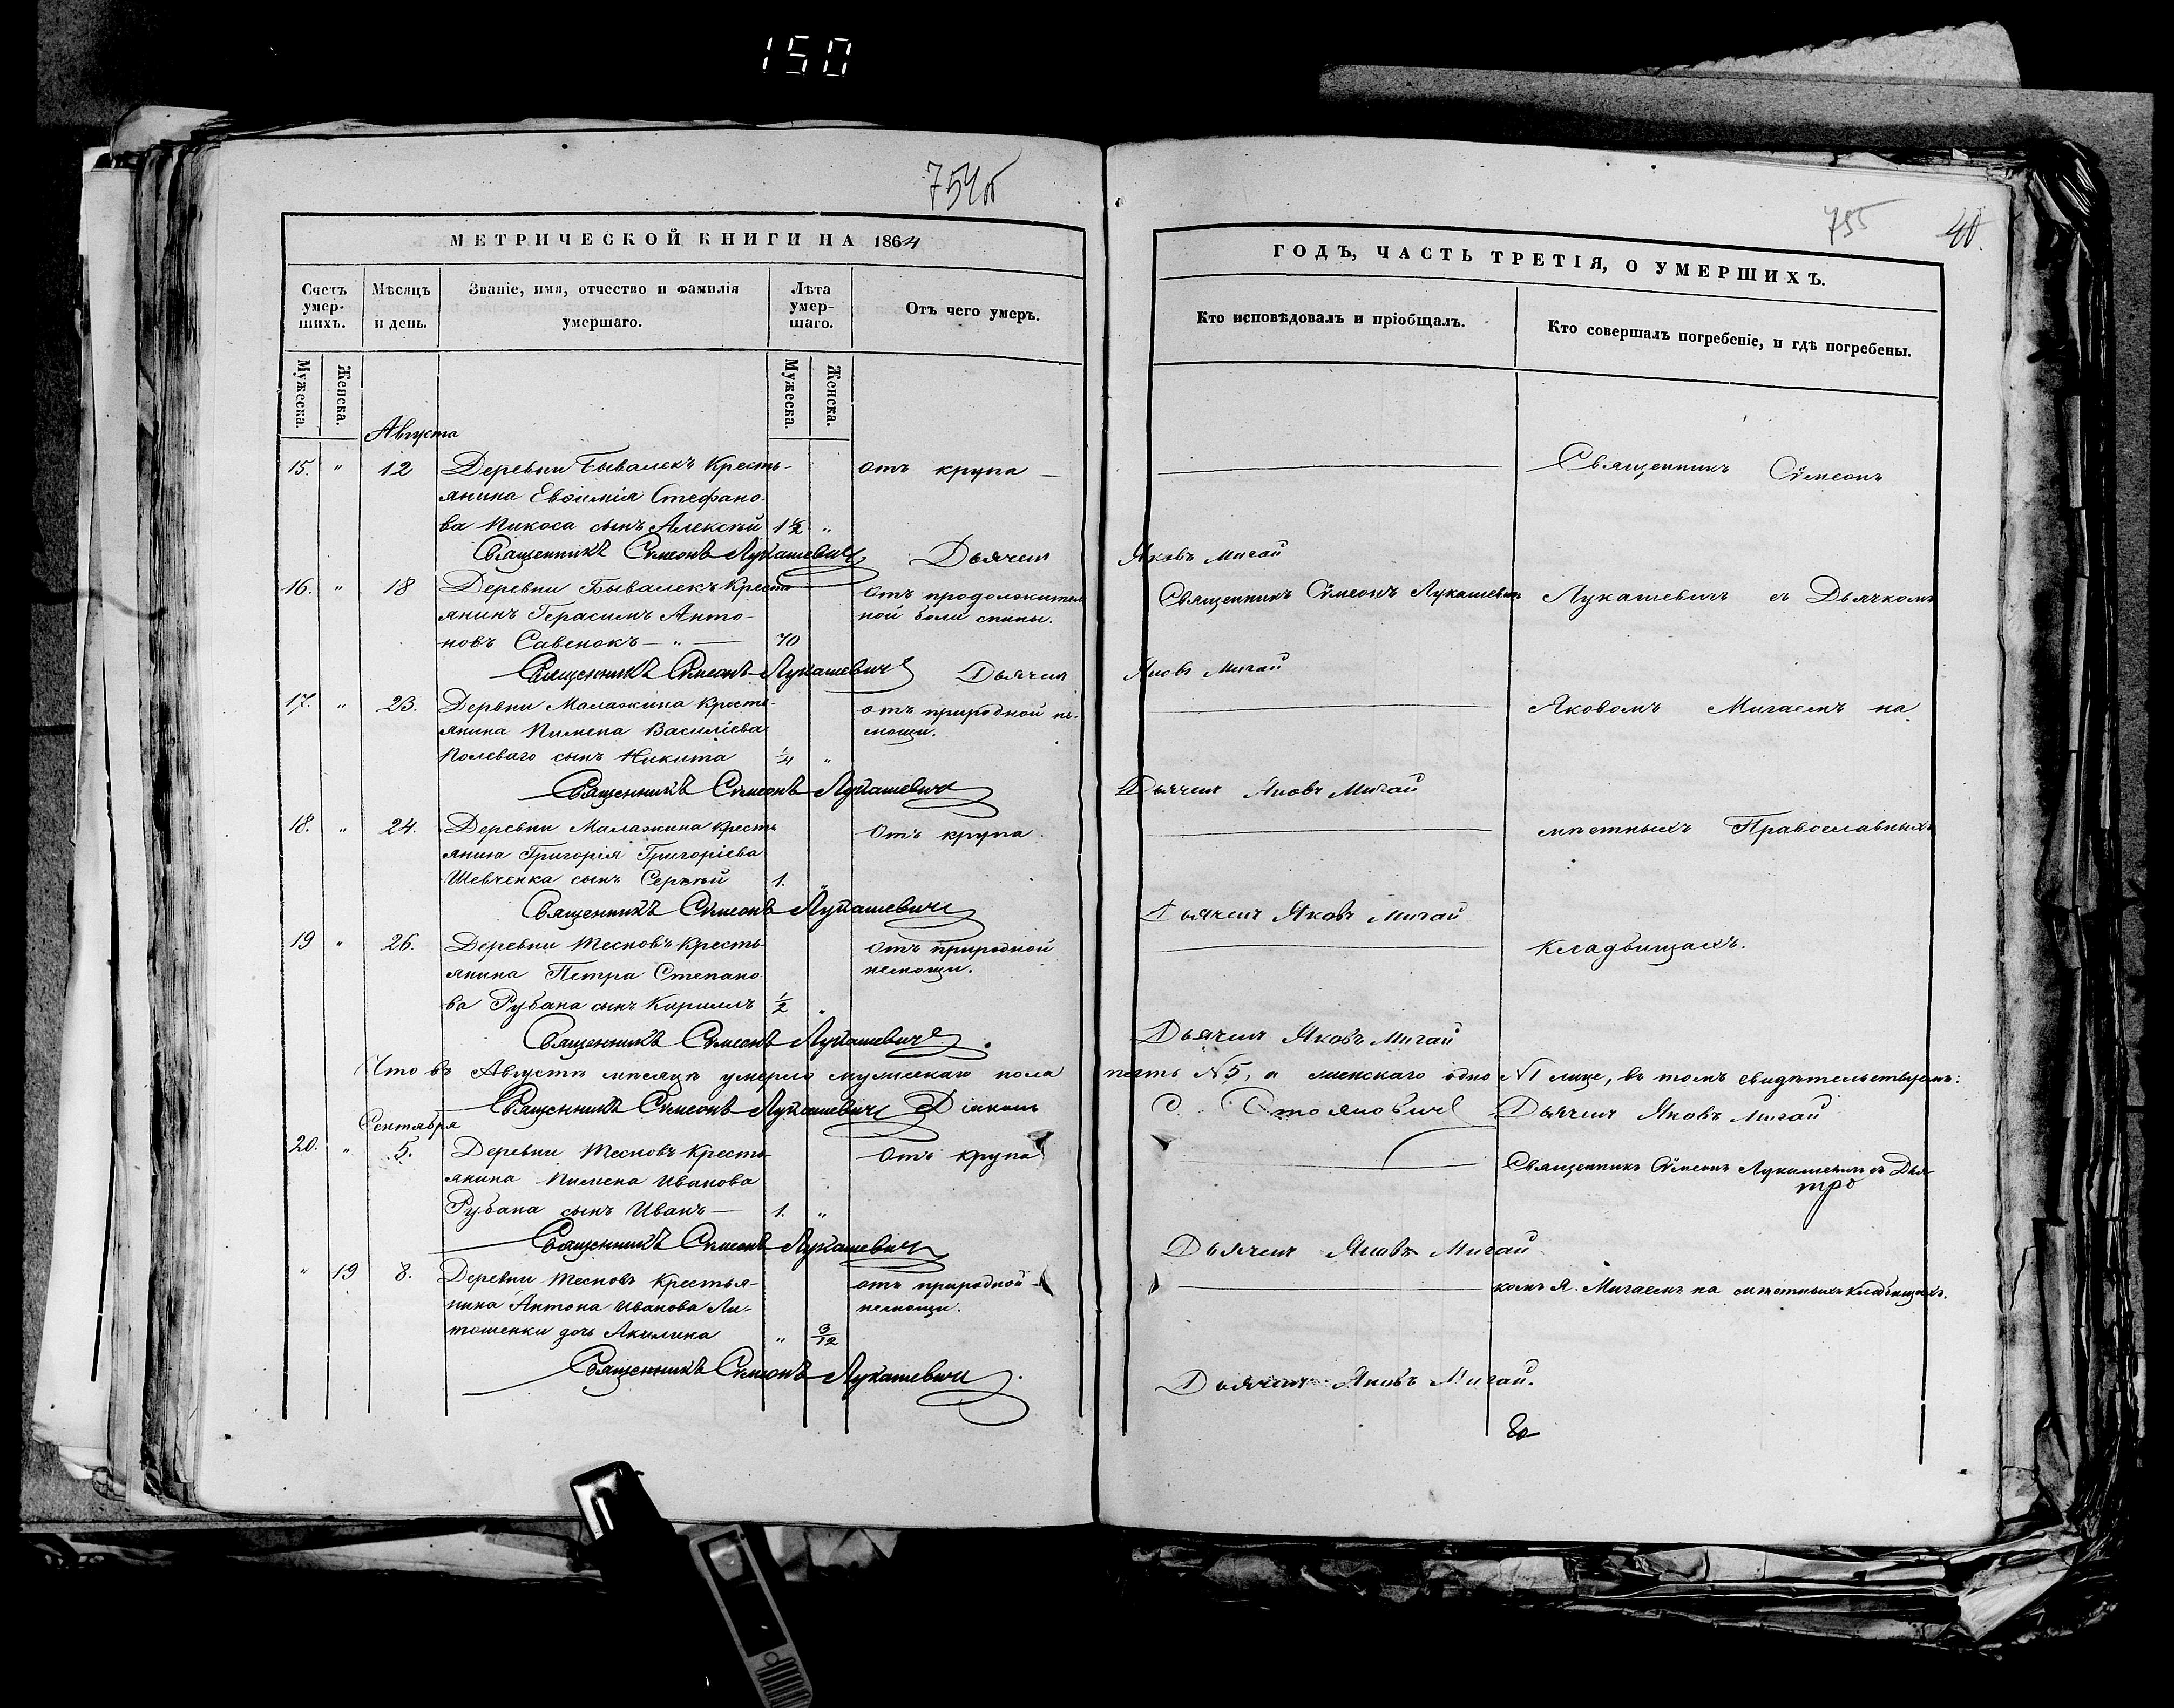 150
754об
МЕТРИЧЕСКОЙ КНИГИ НА 1864
Счетъ умер- шихъ.
Мѣсяцъ и день.
Званіе, имя, отчество и фамилія умершаго.
Лѣта умер- шаго.
Отъ чего умеръ.
Мужеска.
Женска.
Мужеска.
Женска.
Августа
15. " 12 Деревни Бывалекъ Кресть- отъ крупа —
янина Евѳимія Стефано-
ва Пикоса сынъ Алексѣй 1½ "
Священникъ Симеонъ Лукашевичъ Дьячекъ
16. " 18 Деревни Бывалекъ Кресть- отъ продолжитель
янинъ Герасимъ Анто- ной боли спины.
новъ Савенокъ — " — 70
Священникъ Симеонъ Лукашевичъ Дьячекъ
17. " 23. Дервни Малажина Кресть- отъ природной не-
янина Пимена Василіева мощи.
Полеваго сынъ Никита ¼ "
Священникъ Симеонъ Лукашевичъ
18. " 24. Деревни Малажина Кресть Отъ крупа
янина Григорія Григоріева
Шевченка сынъ Сергѣй 1. "
Священникъ Симеонъ Лукашевичъ
19 " 26. Деревни Тесновъ Кресть- отъ природной
янина Петра Степано- немощи.
ва Рубана сынъ Кириллъ ½ "
Священникъ Симеонъ Лукашевичъ
Что въ Августѣ мѣсяцѣ умерло мужескаго пола
Священникъ Симеонъ Лукашевичъ Діаконъ
Сентября
20. " 5. Деревни Тесновъ Кресть- Отъ крупа
янина Пимена Иванова
Рубана сынъ Иванъ — 1. "
Священникъ Симеонъ Лукашевичъ
" 19 8. Деревни Тесновъ Крестья- отъ природной
нина Антона Иванова Ли- немощи.
тошенки дочь Акилина " 3/12
Священникъ Симеонъ Лукашевичъ
755
40.
ГОДЪ, ЧАСТЬ ТРЕТІЯ, О УМЕРШИХЪ.
Кто исповѣдовалъ и пріобщалъ.
Кто совершалъ погребеніе, и гдѣ погребены.
Священникъ Сѵмеонъ
Яковъ Мигай
Священникъ Сѵмеонъ Лукашевичъ Лукашевичъ съ Дьячкомъ
Яковъ Мигай
Яковомъ Мигаемъ на
Дьячекъ Яковъ Мигай
мѣстныхъ Православныхъ
Дьячекъ Яковъ Мигай
Кладбищахъ.
Дьячекъ Яковъ Мигай
пять №5, а женскаго одно №1 лице, въ томъ свидѣтельствуемъ:
С. Стояновичъ Дьячекъ Яковъ Мигай
Священникъ Сѵмеонъ Лукашевичъ съ Дья-
Дьячекъ Яковъ Мигай
комъ Я. Мигаемъ на мѣстныхъ кладбищахъ.
Дьячекъ Яковъ Мигай.